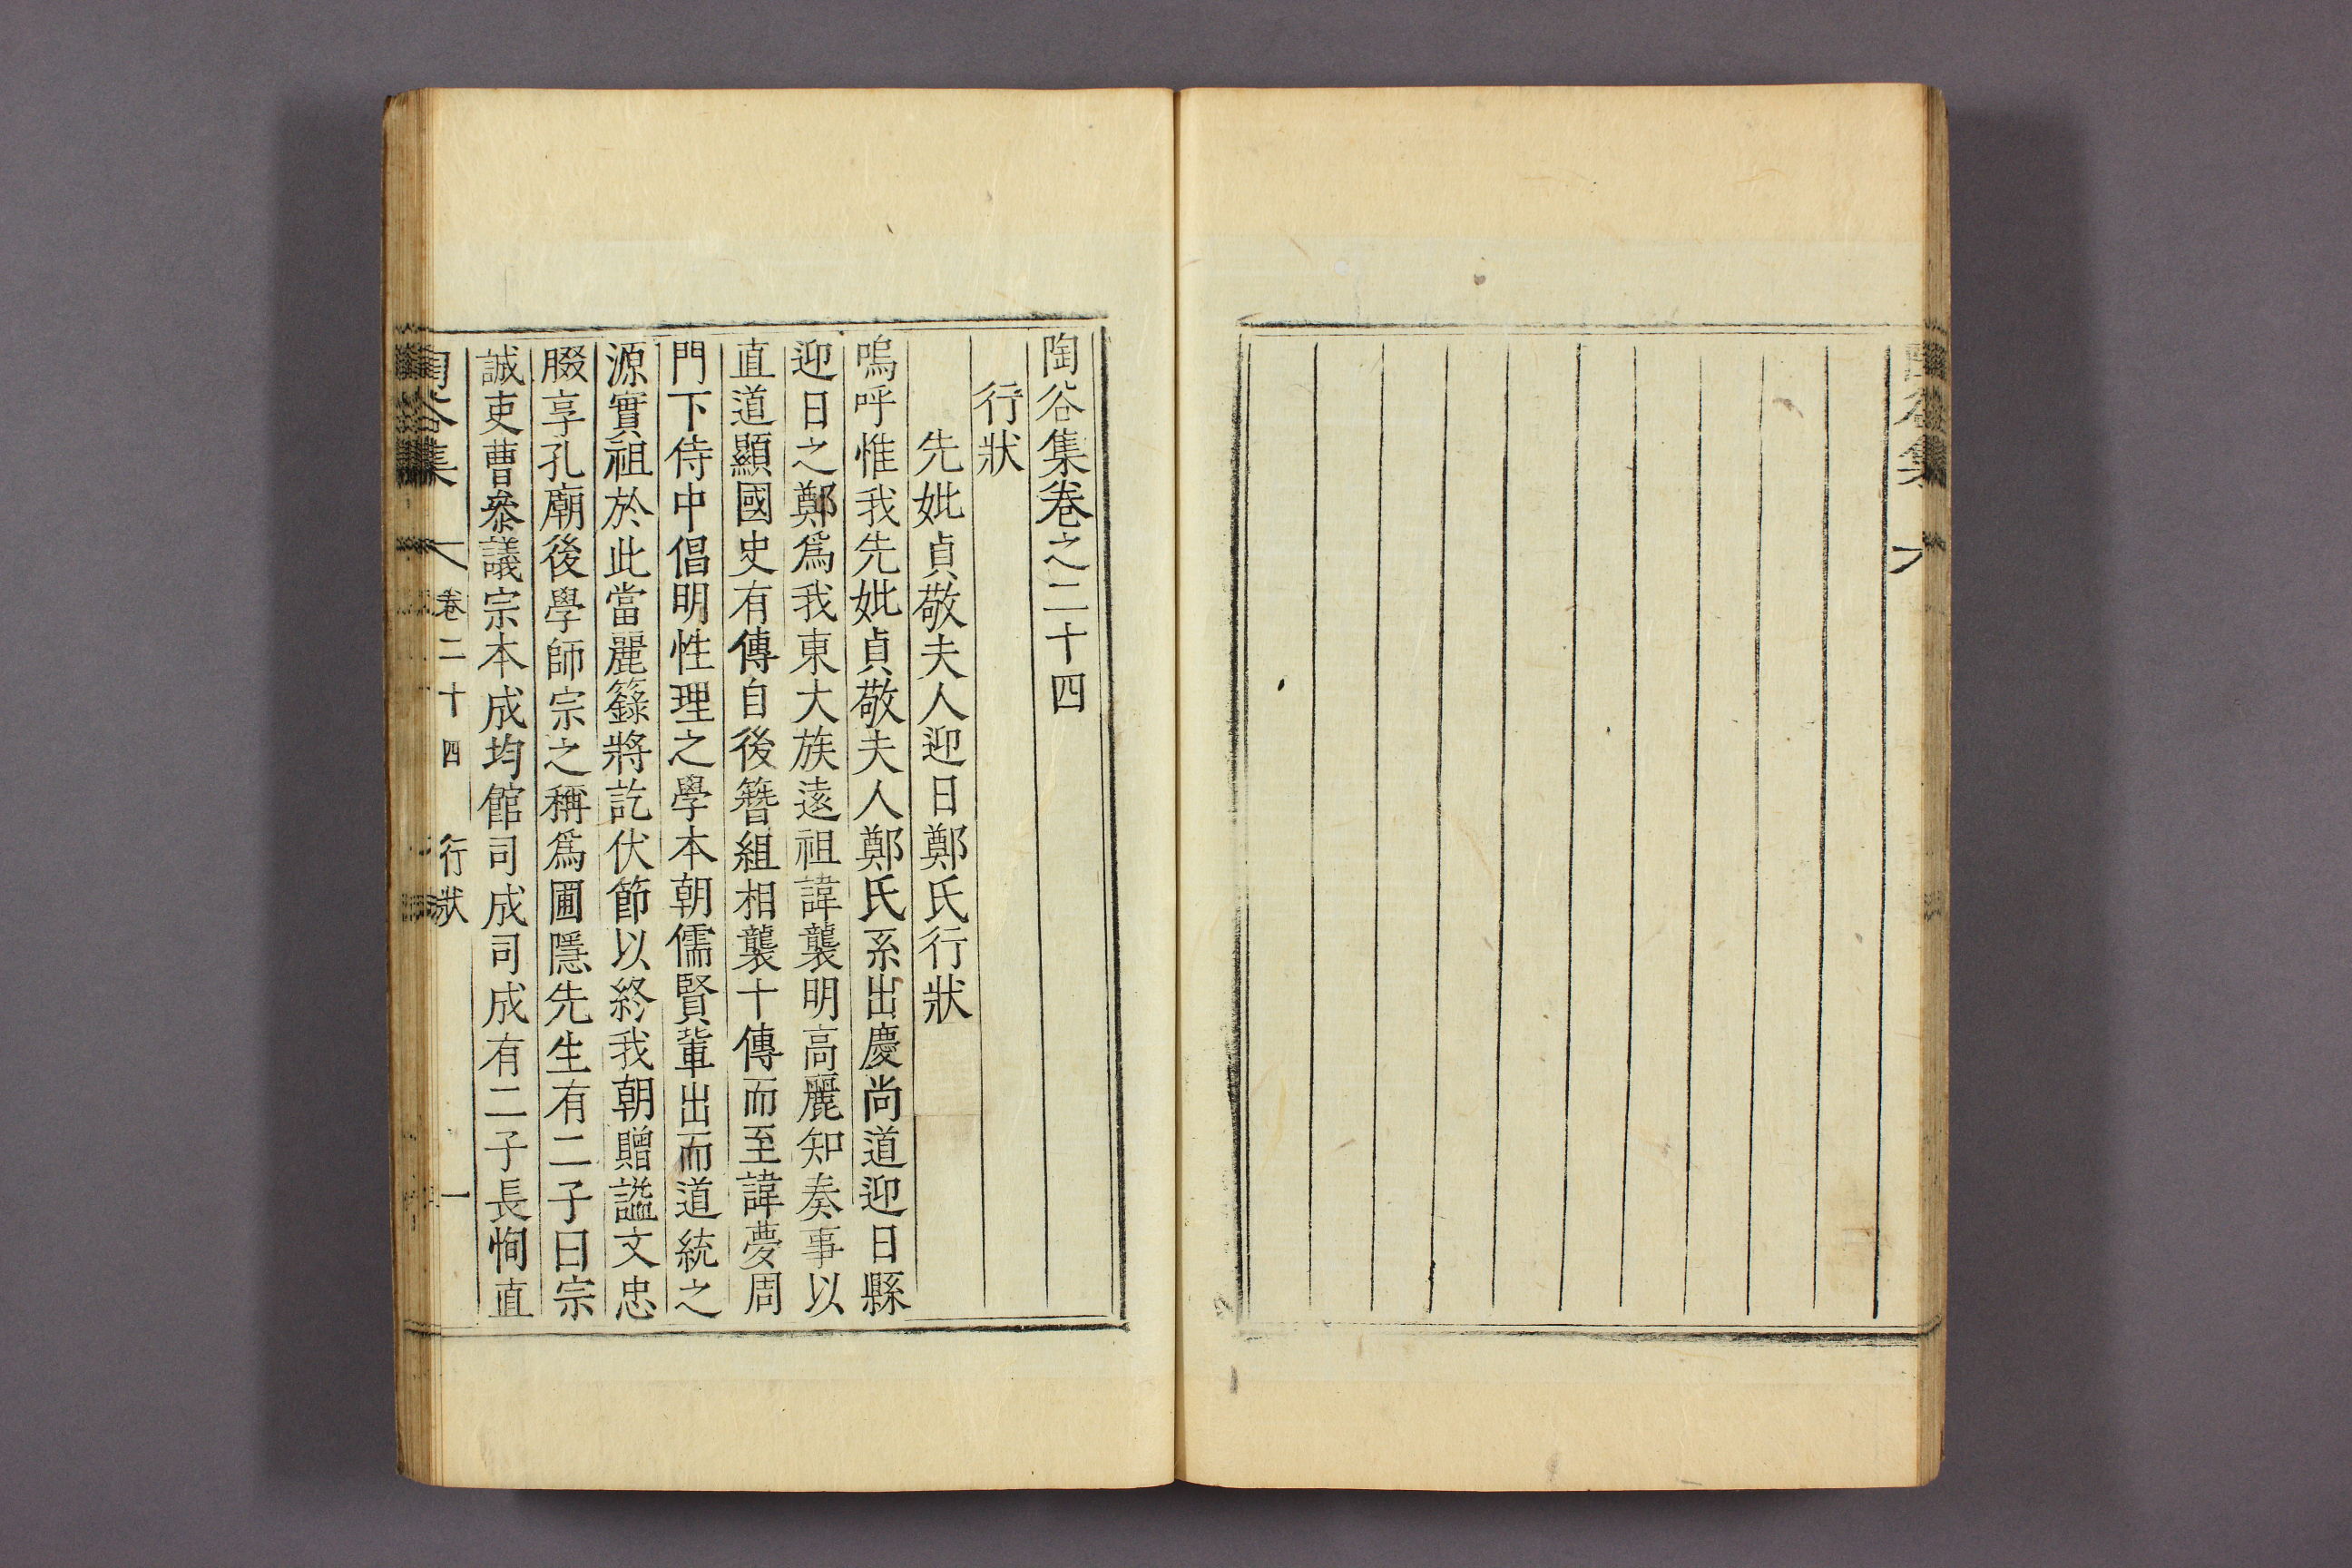 陶谷集卷之二十四
行狀
先妣貞敬夫人迎日鄭氏行狀
嗚呼惟我先妣貞敬夫人鄭氏系出慶尚道迎日縣
迎日之鄭爲我東大族遠祖諱襲明高麗知奏事以
直道顯國史有傳自後簪組相襲十傳而至諱夢周
門下侍中倡明性理之學本朝儒賢軰出而道統之
源實祖於此當麗籙將訖伏節以終我朝贈謚文忠
腏享孔廟後學師宗之稱爲圃隱先生有二子曰宗
誠吏曹叅議宗本成均館司成司成有二子長恂直
陶谷集 卷二十四 行狀 一